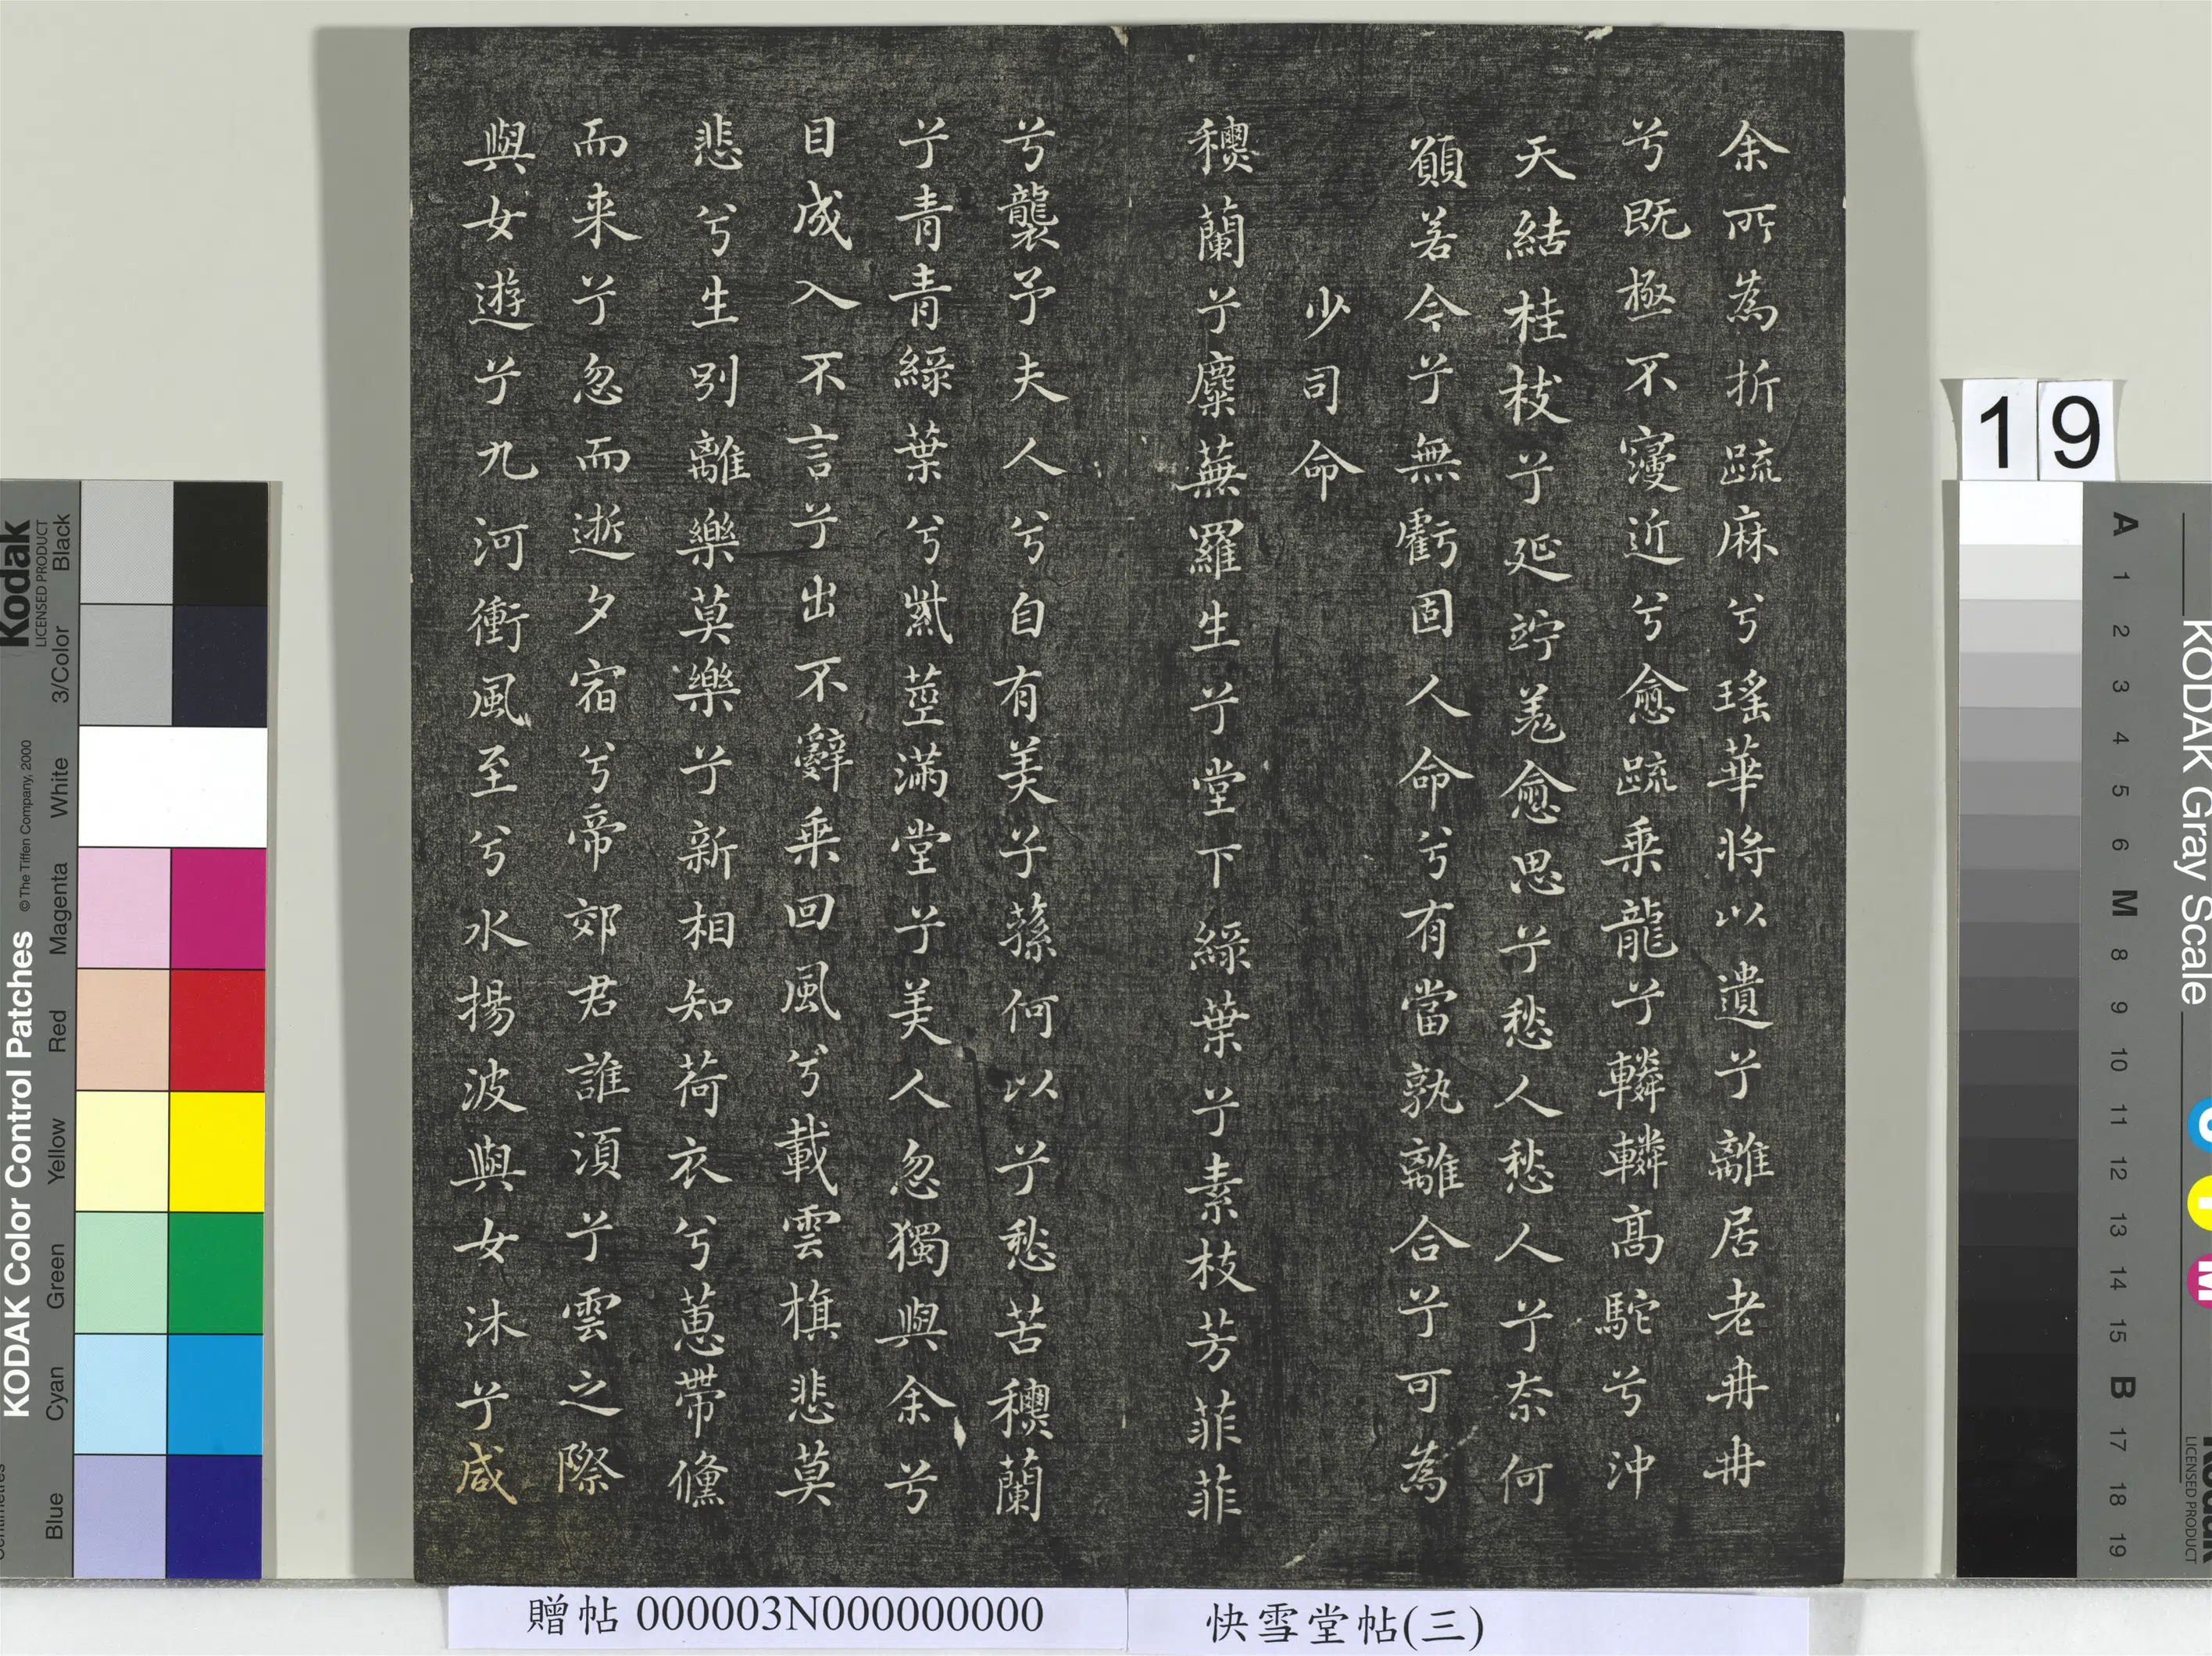 余所為折䟽麻兮瑤華將以遺兮離居老冉冉
兮既極不寖近兮愈䟽乗龍兮轔轔髙駝兮沖
天結桂枝兮延竚羗愈思兮愁人愁人兮奈何
願若今兮無虧固人命兮有當孰離合兮可為
少司命
穐蘭兮麋蕪羅生兮堂下綠葉兮素枝芳菲菲
兮襲予夫人兮自有美子蓀何以兮愁苦穐蘭
兮青青綠葉兮紫莖滿堂兮美人忽獨與余兮
目成入不言兮出不辭乗回風兮載雲旗悲莫
悲兮生別離樂莫樂兮新相知荷衣兮蕙帶儵
而来兮忽而逝夕宿兮帝郊君誰湏兮雲之際
與女遊兮九河衝風至兮水揚波與女沐兮咸
贈帖 000003N000000000
快雪堂帖(三)
19
KODAK Color Control Patches
© The Tiffen Company, 2000
Kodak
LICENSED PRODUCT
Blue Cyan Green Yellow Red Magenta White 3/Color Black
KODAK Gray Scale
A 1 2 3 4 5 6 M 8 9 10 11 12 13 14 15 B 17 18 19
LICENSED PRODUCT